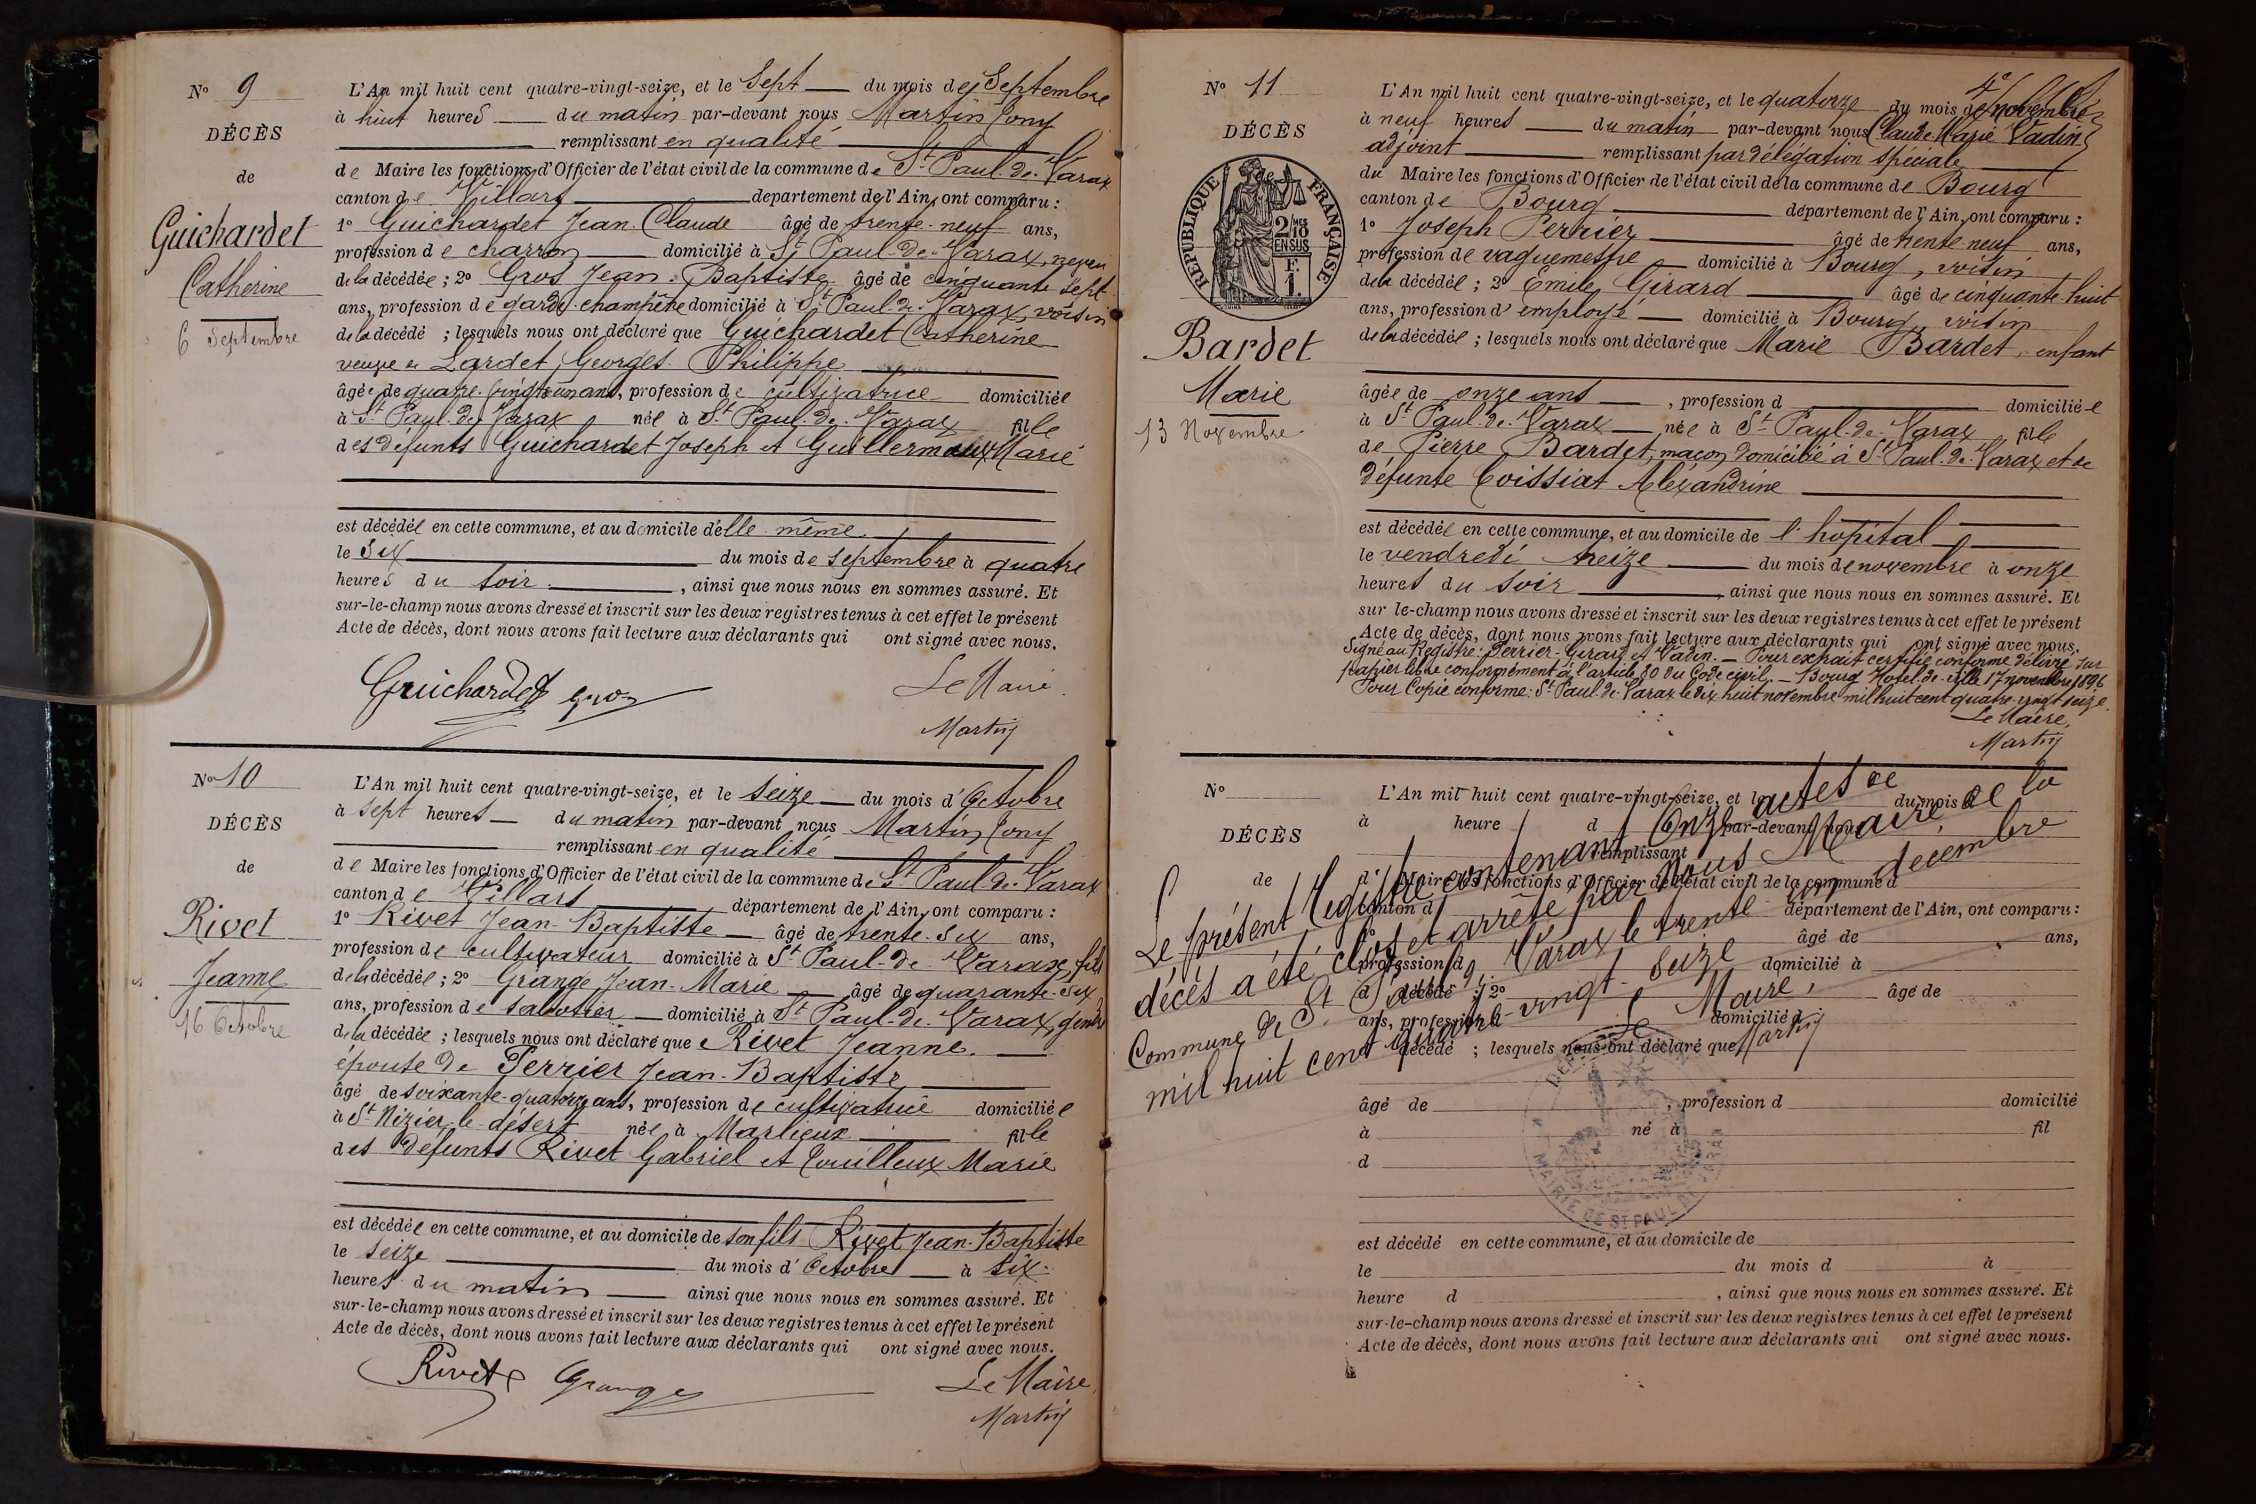 N° 9
DÉCÈS
de
Guichardet
Catherine
6 Septembre
L'An mil huit cent quatre-vingt-seize, et le Sept du mois de Septembre
à huit heures du matin par-devant nous Martin Tony
remplissant en qualité
de Maire les fonctions d'Officier de l'état civil de la commune de St Paul-de-Varax
canton de Villars département de l'Ain, ont comparu :
1° Guichardet Jean-Claude âgé de trente-neuf ans,
profession de charron domicilié à St Paul-de-Varax, neveu
de la décédée ; 2° Gros Jean-Baptiste âgé de cinquante sept
ans, profession de garde-champêtre domicilié à St Paul-de-Varax, voisin
de la décédé ; lesquels nous ont déclaré que Guichardet Catherine
veuve de Lardet Georges Philippe
âgée de quatre-vingt-un ans, profession de cultivatrice domiciliée
à St Paul-de-Varax née à St Paul-de-Varax fille
des défunts Guichardet Joseph et Guillermaux Marie
est décédée en cette commune, et au domicile d'elle même
le Six du mois de septembre à quatre
heures du soir, ainsi que nous nous en sommes assuré. Et
sur-le-champ nous avons dressé et inscrit sur les deux registres tenus à cet effet le présent
Acte de décès, dont nous avons fait lecture aux déclarants qui ont signé avec nous.
Guichardet gros Le Maire
Martin
N° 10
DÉCÈS
de
Rivet
Jeanne
16 Octobre
L'An mil huit cent quatre-vingt-seize, et le Seize du mois d'Octobre
à sept heures du matin par-devant nous Martin Tony
remplissant en qualité
de Maire les fonctions d'Officier de l'état civil de la commune de St Paul-de-Varax
canton de Villars département de l'Ain, ont comparu :
1° Rivet Jean-Baptiste âgé de trente-six ans,
profession de cultivateur domicilié à St Paul-de-Varax, fils
de la décédée ; 2° Grange Jean-Marie âgé de quarante-six
ans, profession de sabotier domicilié à St Paul-de-Varax, gendre
de la décédée ; lesquels nous ont déclaré que Rivet Jeanne
épouse de Perrier Jean-Baptiste
âgé de soixante-quatorze ans, profession de cultivatrice domiciliée
à St Nizier-le-désert née à Marlieux fille
des défunts Rivet Gabriel et Marie
est décédée en cette commune, et au domicile de son fils Rivet Jean-Baptiste
le Seize du mois d'Octobre à six
heures du matin ainsi que nous nous en sommes assuré. Et
sur-le-champ nous avons dressé et inscrit sur les deux registres tenus à cet effet le présent
Acte de décès, dont nous avons fait lecture aux déclarants qui ont signé avec nous.
Rivet Grange Le Maire,
Martin
N° 11
DÉCÈS
de
RÉPUBLIQUE FRANÇAISE
2/10 MES
EN SUS
F.
1.
Bardet
Marie
13 Novembre
L'An mil huit cent quatre-vingt-seize, et le quatorze du mois de novembre
à neuf heures du matin par-devant nous Claude Marie Vadin
adjoint remplissant par délégation spéciale
du Maire les fonctions d'Officier de l'état civil de la commune de Bourg
canton de Bourg département de l'Ain, ont comparu :
1° Joseph Perrier âgé de trente-neuf ans,
profession de vaguemestre domicilié à Bourg, voisin
de la décédée ; 2° Emile Girard âgé de cinquante-huit
ans, profession d'employé domicilié à Bourg, voisin
de la décédée ; lesquels nous ont déclaré que Marie Bardet, enfant
âgée de onze ans, profession d domiciliée
à St Paul-de-Varax née à St Paul-de-Varax fille
de Pierre Bardet, maçon domicilié à St Paul-de-Varax et de
défunte Coissiat Alexandrine
est décédée en cette commune, et au domicile de l'hôpital
le vendredi treize du mois de novembre à onze
heures du soir, ainsi que nous nous en sommes assuré. Et
sur le-champ nous avons dressé et inscrit sur les deux registres tenus à cet effet le présent
Acte de décès, dont nous avons fait lecture aux déclarants qui ont signé avec nous.
Signé au Registre: Perrier - Girard et Vadin. — Pour extrait certifié conforme délivré sur
papier libre conformément à l'article 80 du Code civil. — Bourg Hotel-de-ville 17 novembre 1896
Pour Copie conforme: St Paul-de-Varax le dix huit novembre mil huit cent quatre-vingt seize.
Le Maire,
Martin
N°
DÉCÈS
de
L'An mil huit cent quatre-vingt-seize, et le du mois d
à heure d par-devant nous
remplissant
d Maire les fonctions d'Officier de l'état civil de la commune d
canton d département de l'Ain, ont comparu :
âgé de ans,
profession d domicilié à
d décédé ; 2° âgé de
ans, profession d domicilié à
décédé ; lesquels nous ont déclaré que
Le présent Registre contenant Onze actes de
décès a été clos et arrêté par nous Maire de la
Commune de St Paul de Varax le trente-un décembre
mil huit cent quatre-vingt-seize
Le Maire,
Martin
MAIRIE DE ST PAUL DE VARAX
âgé de, profession d domicilié
à né à fil
d
est décédé en cette commune, et au domicile de
le du mois d à
heure d, ainsi que nous nous en sommes assuré. Et
sur-le-champ nous avons dressé et inscrit sur les deux registres tenus à cet effet le présent
Acte de décès, dont nous avons fait lecture aux déclarants qui ont signé avec nous.